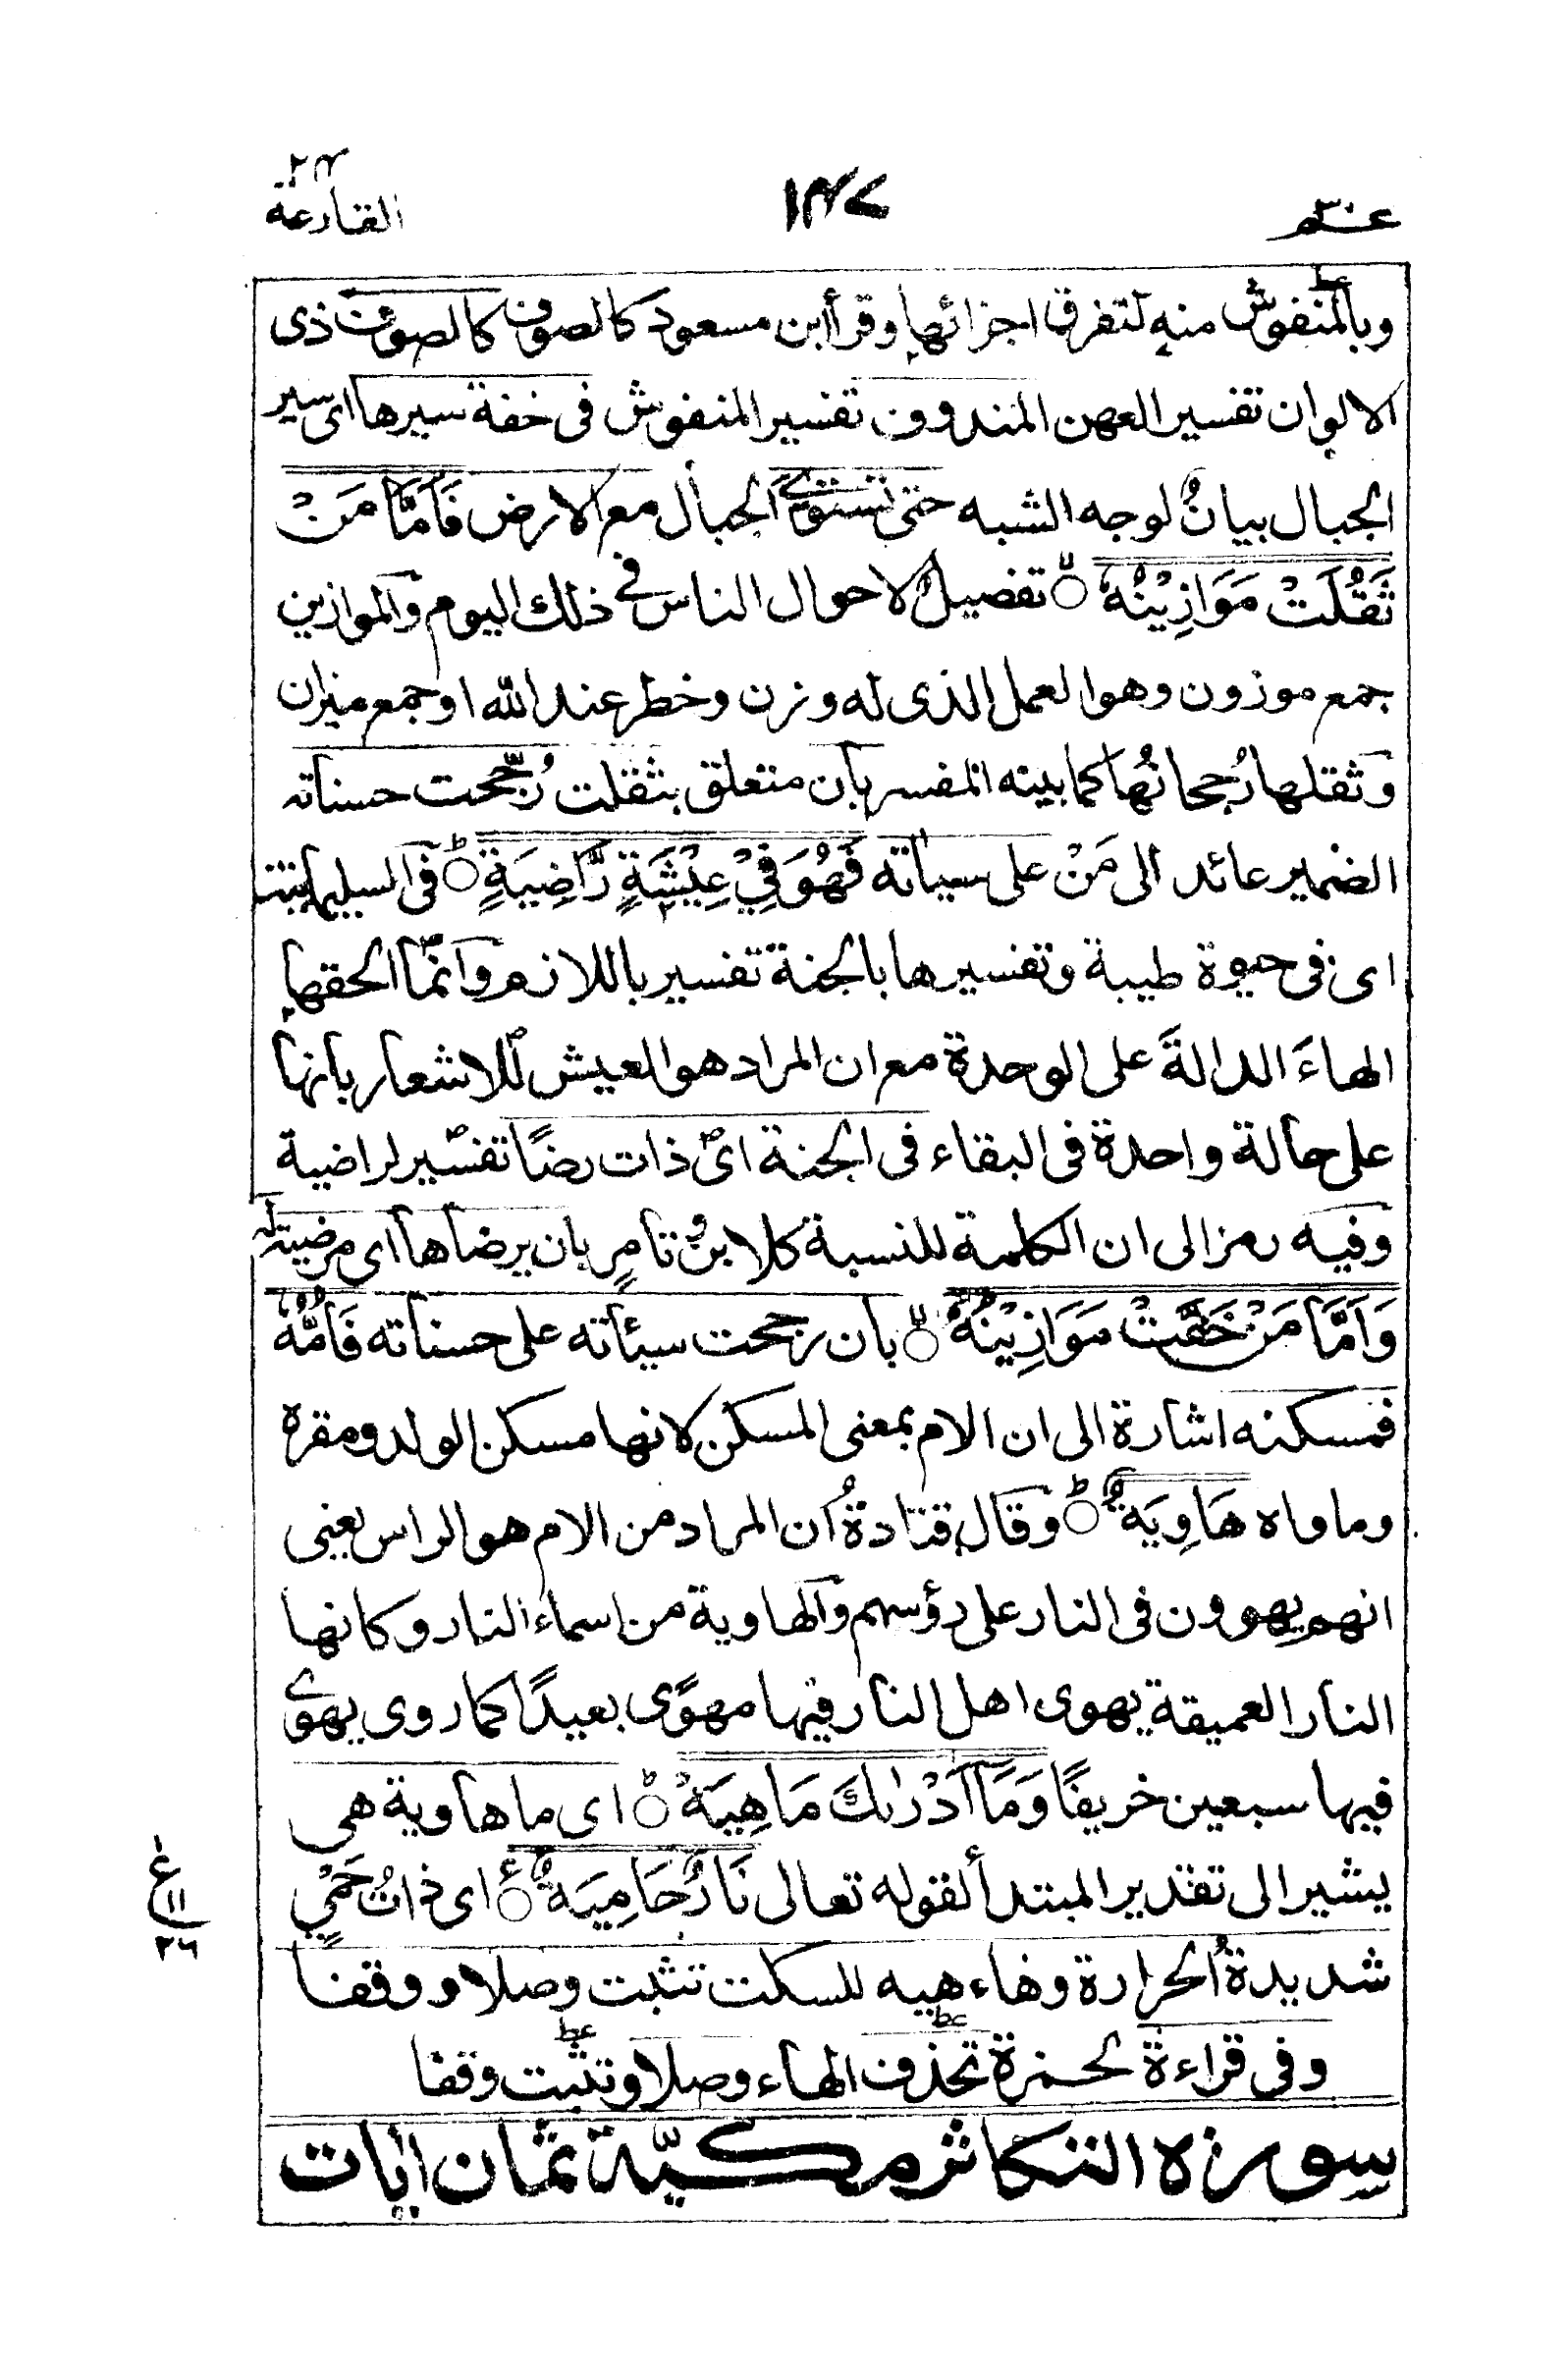 عم ٣٠
١٤٧
القارعة
وبالمنفوش منه لتفرق اجزائها وقرأ ابن مسعود كالصوف كالصوف ذى
الالوان تفسير العهن المندوف تفسير المنفوش فى خفة سيرها اى سير
الجبال بيانٌ لوجه الشبه حتى تستوى الجبال مع الارض فَاَمَّا مَنْ
ثَقُلَتْ مَوَازِيْنُهٗ تفصيلٌ لاحوال الناس فى ذلك اليوم والموازين
جمع موزون وهو العمل الذى له وزن وخطر عند الله او جمع ميزان
وثقلها رُجحانُها كما بينه المفسر بأن متعلق بثقلت رُجّحت حسناته
الضمير عائد الى مَنْ على سيأته فَهُوَ فِيْ عِيْشَةٍ رَّاضِيَةٍ فى
اى فى حيوة طيبة وتفسيرها بالجنة تفسير باللازم وانما الحقها
الهاءَ الدالةَ على الوحدة مع ان المراد هو العيش للاشعار بانها
على حالة واحدة فى البقاء فى الجنة اى ذات رضًا تفسير لراضية
وفيه رمز الى ان الكلمة للنسبة كلابنٌ تامرٍ بان يرضاها اى مرضية له
وَاَمَّا مَنْ خَفَّتْ مَوَازِيْنُهٗ بان رجحت سيئاته على حسناته فَاُمُّهٗ
فمسكنه اشارة الى ان الام بمعنى المسكن لانها مسكن الولد ومقره
وماواه هَاوِيَةٌ وقال قتادةُ ان المراد من الام هو الراس يعنى
انهم يهوون فى النار على رؤسهم والهاوية من اسماء النار وكانها
النار العميقة يهوى اهل النار فيها مهوًى بعيدًا كما روى يهوى
فيها سبعين خريفًا وَمَآ اَدْرٰىكَ مَاهِيَهْ اى ما هاوية هى
يشير الى تقدير المبتدأ لقوله تعالى نَارٌ حَامِيَةٌ اى ذاتُ حَمْىٍ
ع
١١
٢٦
شديدةُ الحرارة وهاء هيه للسكت تثبت وصلا و وقفا
وفى قراءة لحمزة تحذف الهاء وصلا وتثبت وقفا
سورة التكاثر مكيّة ثمان اٰيات